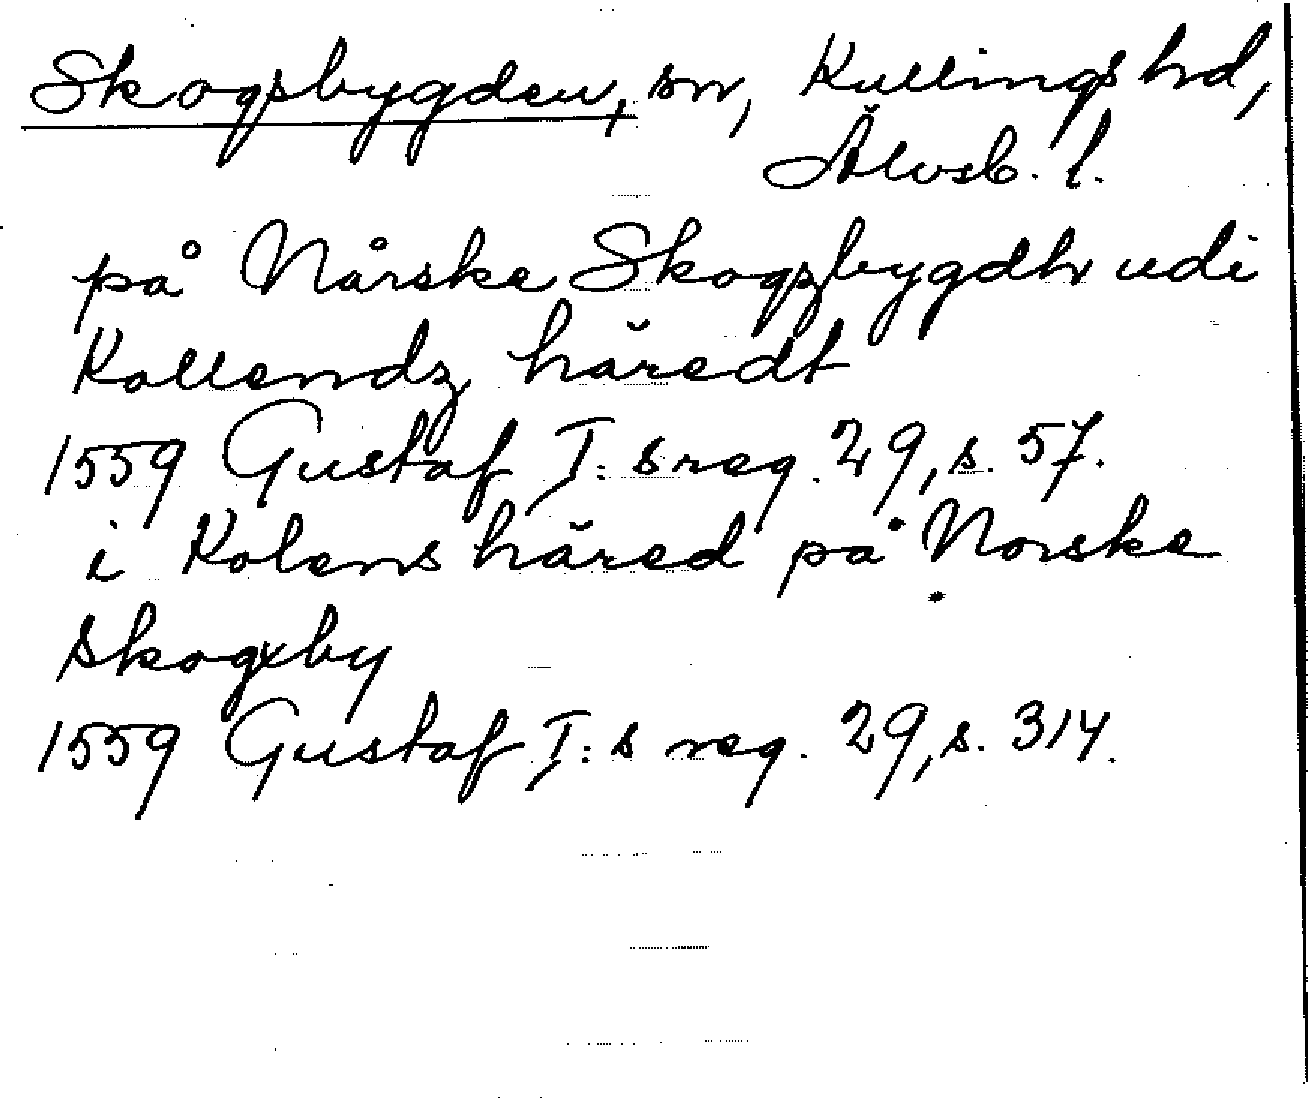 Skogsbygden, sn, Kullings hd,
Älvsb. l.
på Nårske Skogzbygdh udi
Kollendz häredt
1559 Gustaf I:s reg. 29, s. 57.
i Kolens häred på Norske
skogxby
1559 Gustaf I:s reg. 29, s. 314.